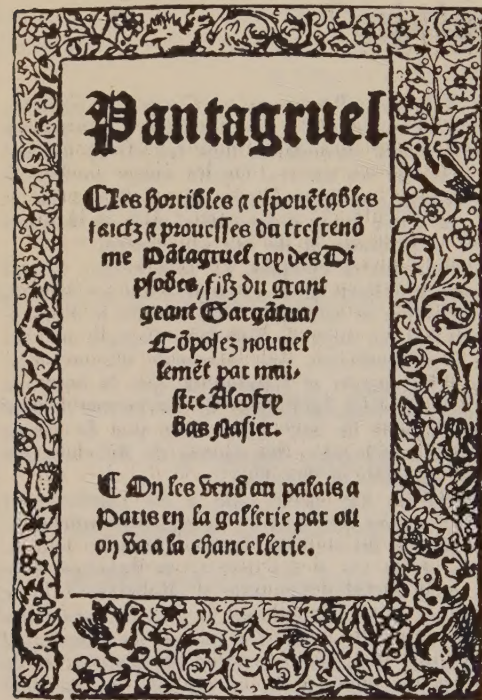 Pantagruel
¶Les horribles ⁊ espouẽtables
faictz ⁊ prouesses du tresrenõ
me Pãtagruel roy des Di
psodes / filz du grant
geant Gargãtua /
Cõposez nouuel
lemẽt par mai⸗
stre Alcofry
bas Nasier.
¶ On les vend au palais a
Paris en la gallerie par ou
on va a la chancellerie.